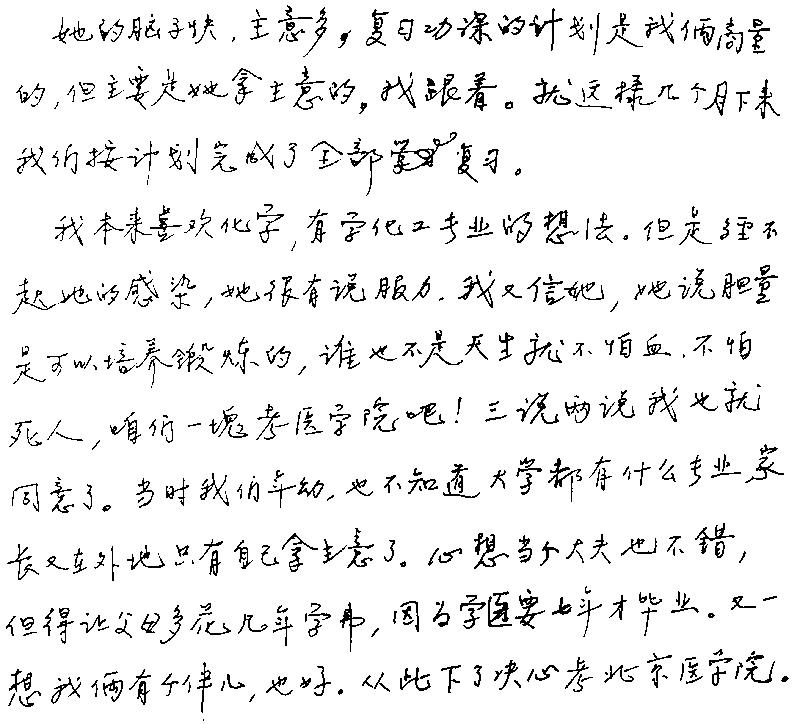 她的脑子快，主意多，复习功课的计划是我俩商量
的，但主要是她拿主意的，我跟着。就这样几个月下来
我们按计划完成了全部复习。
我本来喜欢化学，有学化工专业的想法。但是经不
起她的感染，她很有说服力，我又信她，她说胆量
是可以培养锻炼的，谁也不是天生就不怕血、不怕
死人，咱们一块考医学院吧！三说两说我也就
同意了。当时我们年幼，也不知道大学都有什么专业家
长又在外地只有自己拿主意了。心想当个大夫也不错，
但得让父母多花几年学费，因为学医要七年才毕业。又一
想我俩有个伴儿，也好。从此下了决心考北京医学院。